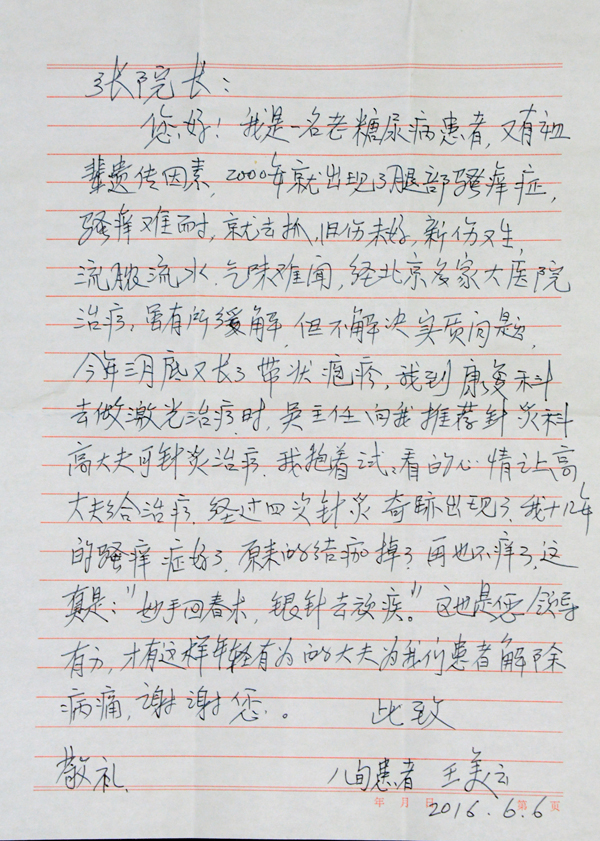 张院长:
您好!我是一名老糖尿病患者,又有祖
辈遗传因素,2000年就出现了腿部骚痒症,
骚痒难耐,就去抓,旧伤未好,新伤又生,
流脓流水.气味难闻,经北京多家大医院
治疗,虽有所缓解,但不解决实质问题,
今年三月底又长了带状疱疹,我到康复科
去做激光治疗时,吴主任向我推荐针灸科
高大夫可针灸治疗.我抱着试试看的心情让高
大夫给治疗.经过四次针灸奇跡出现了.我十几年
的骚痒症好了.原来的结痂掉了再也不痒了,这
真是:"妙手回春术,银针去顽疾。"这也是您领导
有力,才有这样年轻有为的大夫为我们患者解除
病痛,谢谢您.。 此致
敬礼. 八旬患者 王美云
年 月 日 第 页
2016.6.6